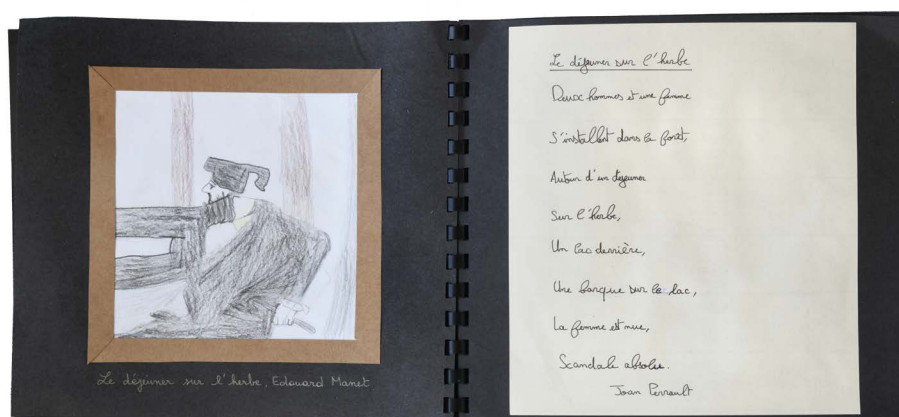 Le déjeuner sur l'herbe, Edouard Manet
Le déjeuner sur l'herbe
Deux hommes et une femme
S'installent dans la forêt,
Autour d'un dejeuner
Sur l'herbe,
Un lac derrière,
Une barque sur le lac,
La femme est nue,
Scandale absolu.
Joan Perrault